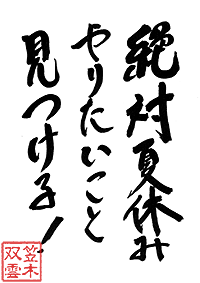 絶対夏休み
やりたいこと
見つける！
笠木
双雲